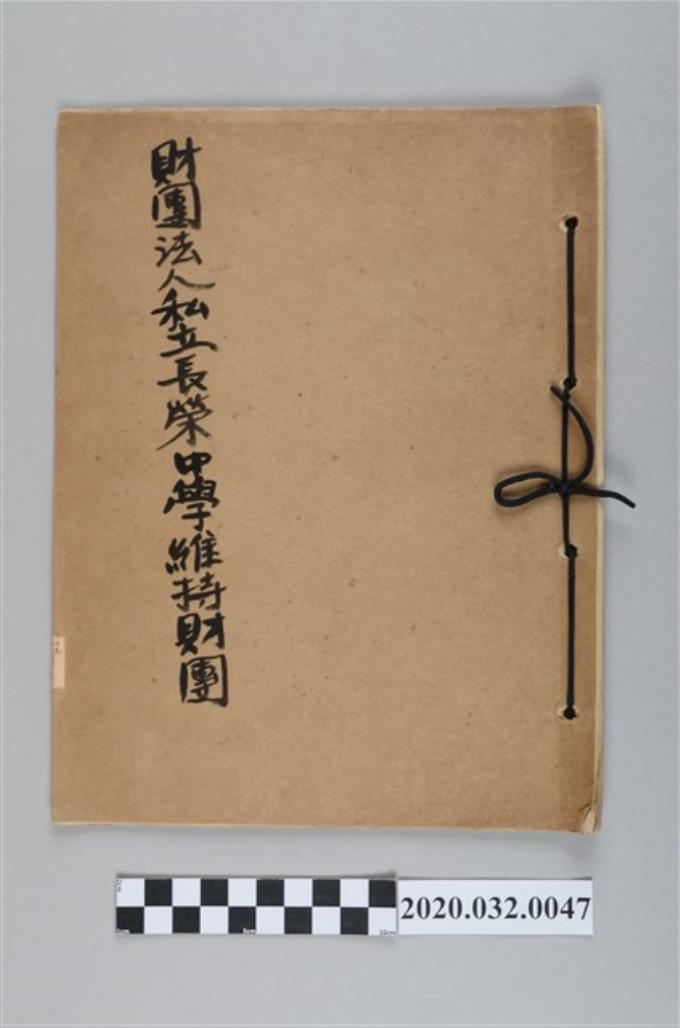 財團法人私立長榮中學維持財團
0cm 5cm 10cm
2020.032.0047